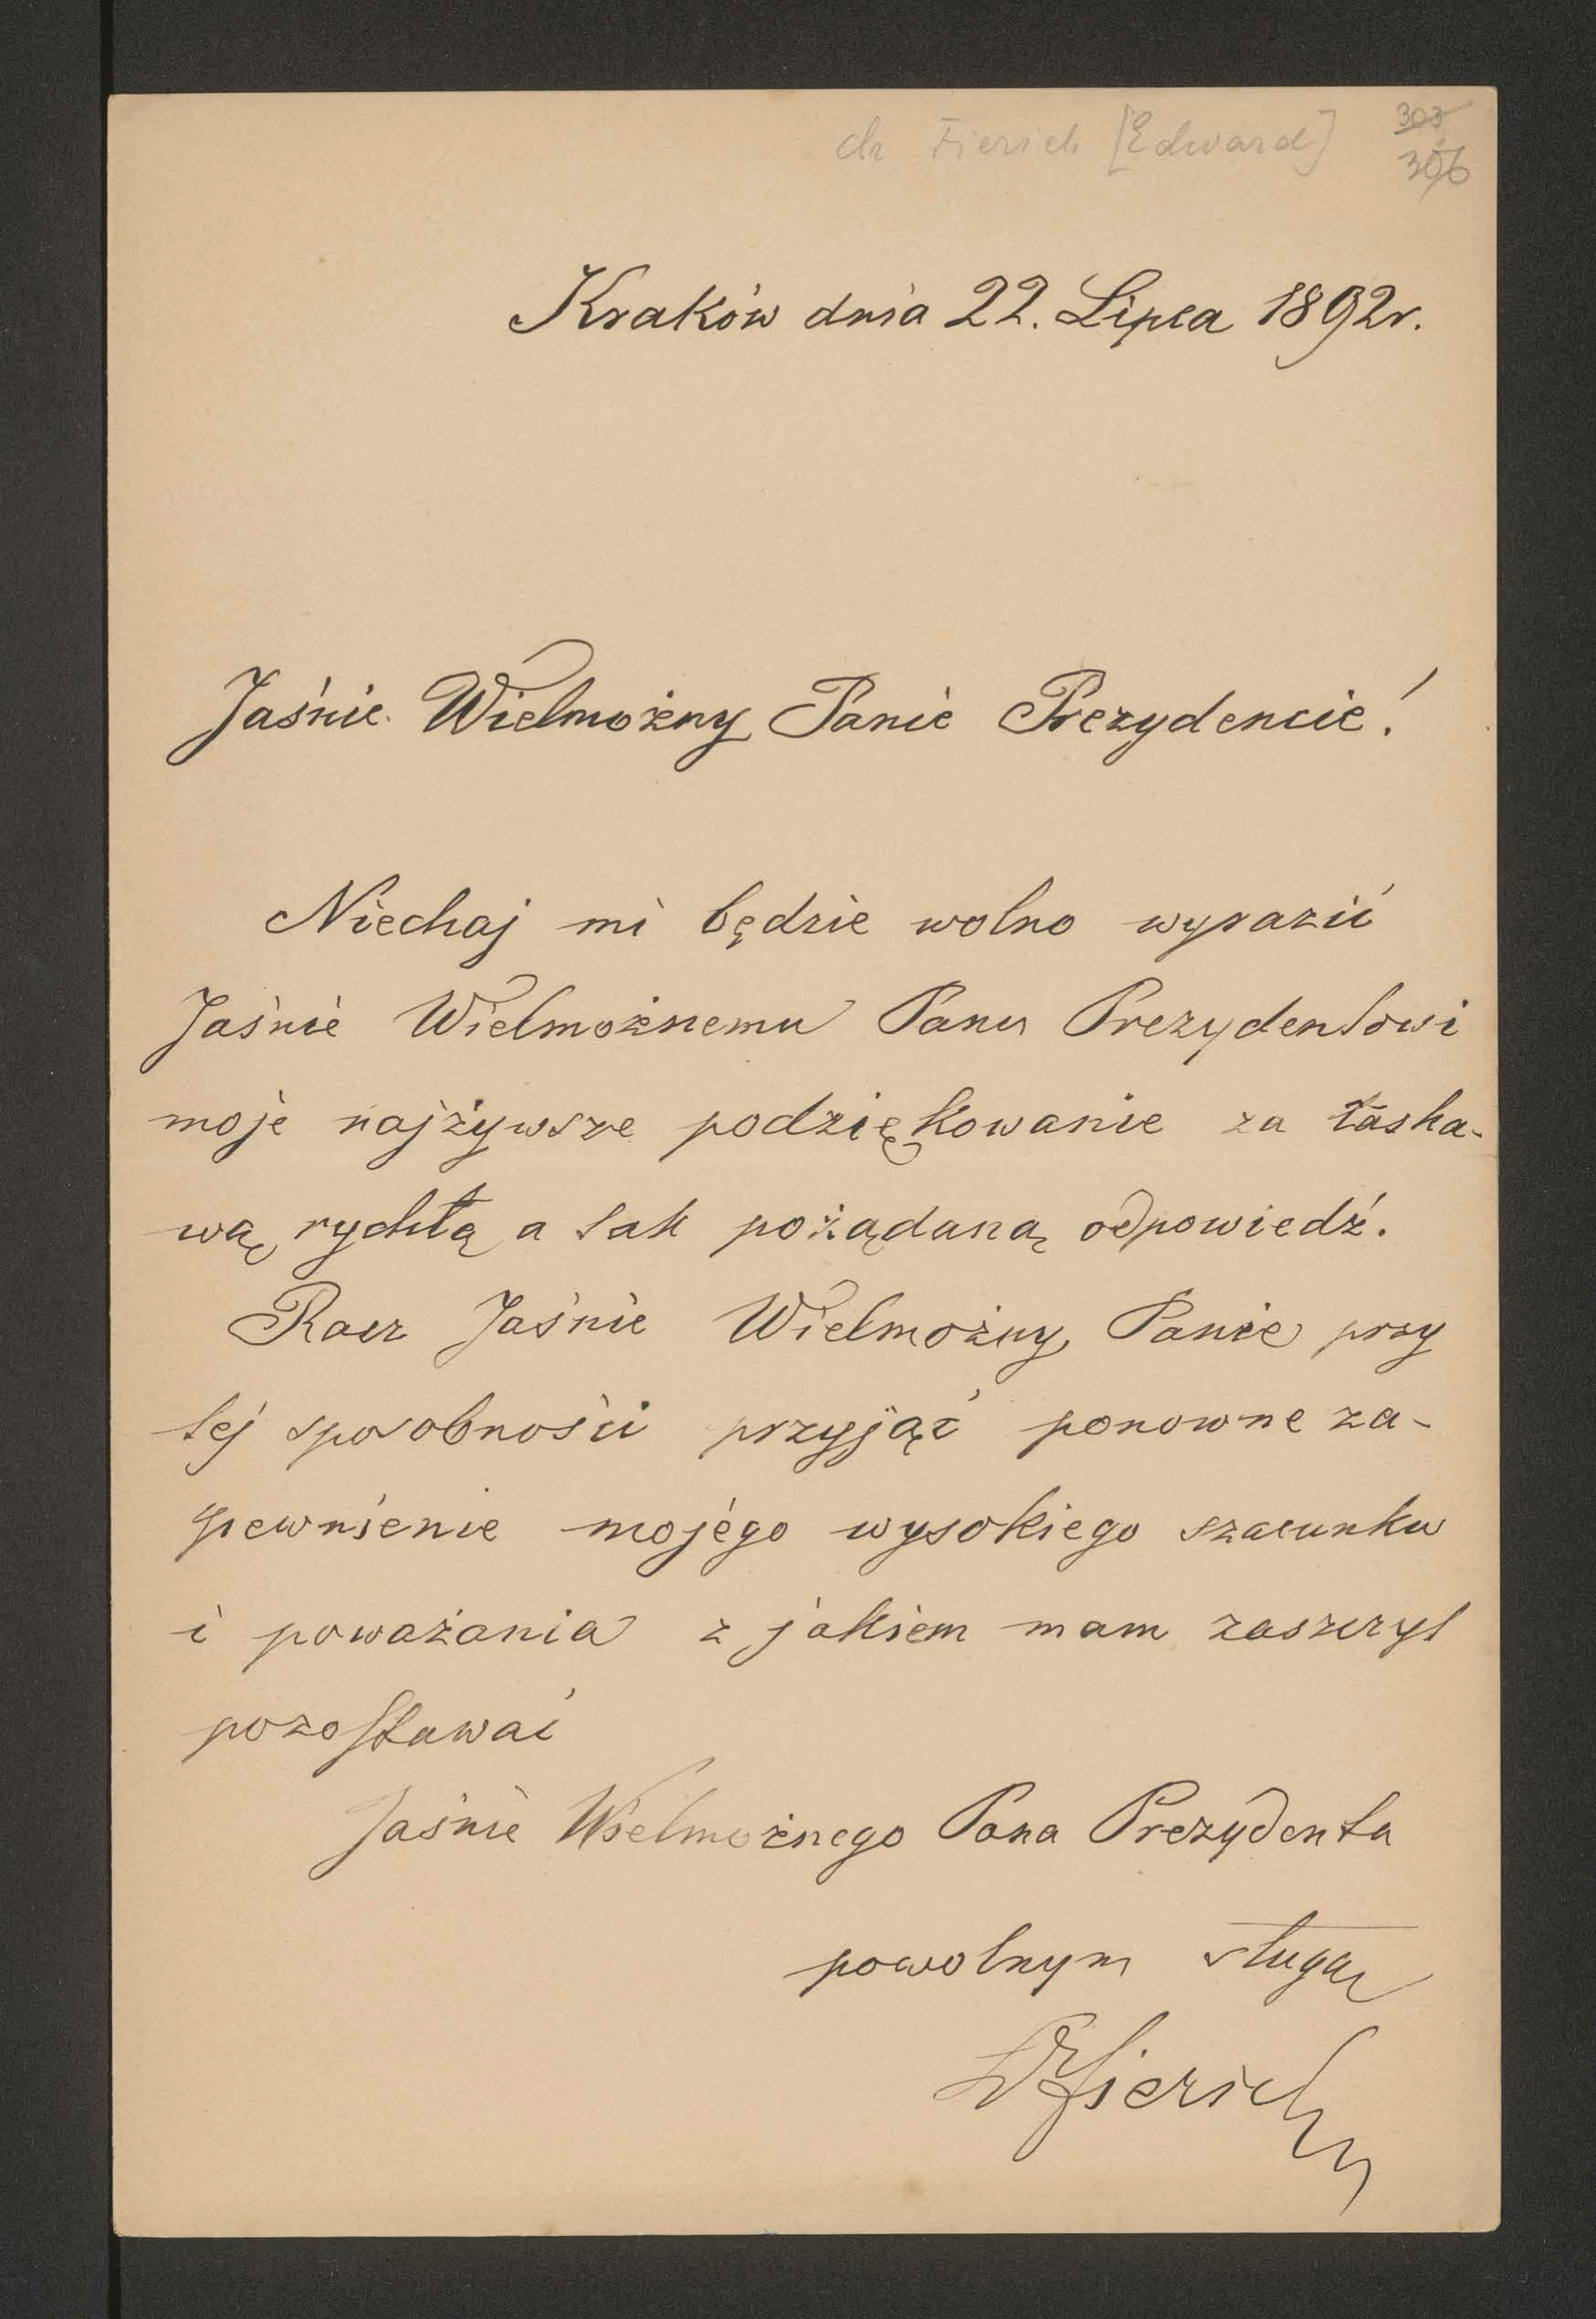 dr Fierich [Edward]
303
306
Kraków dnia 22. Lipca 1892r.
Jaśnie Wielmożny Panie Prezydencie!
Niechaj mi będzie wolno wyrazić
Jaśnie Wielmożnemu Panu Prezydentowi
moje najżywsze podziękowanie za łaska-
wą rychłą a tak pożądaną odpowiedź.
Racz Jaśnie Wielmożny Panie przy
tej sposobności przyjąć ponowne za-
pewnienie mojégo wysokiego szacunku
i poważania z jakiem mam zaszczyt
pozostawać
Jaśnie Wielmożnego Pana Prezydenta
powolnym sługą
Dr Fierich